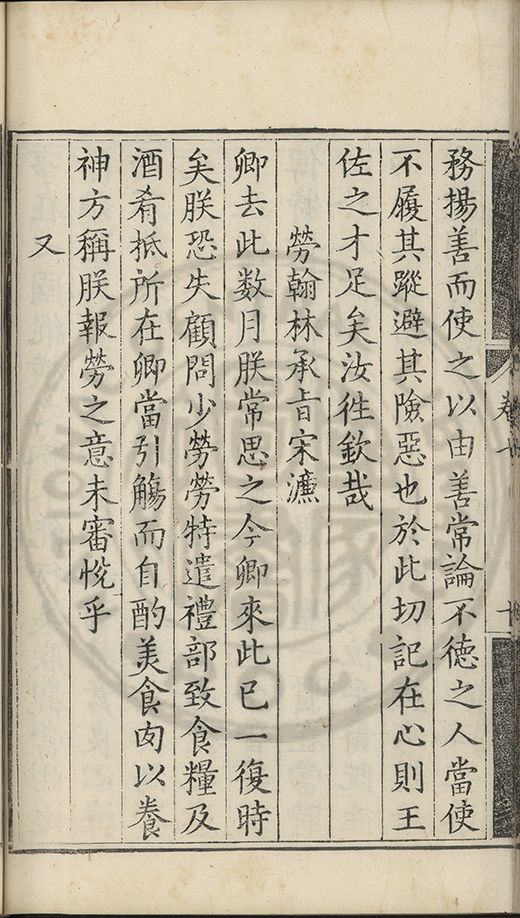 務揚善而使之以由善常論不德之人當使
不履其蹤避其險惡也於此切記在心則王
佐之才足矣汝徃欽哉
勞翰林承旨宋濂
卿去此数月朕常思之今卿來此已一復時
矣朕恐失顧問少勞勞特遣禮部致食糧及
酒肴抵所在卿當引觴而自酌美食肉以養
神方稱朕報勞之意未審恱乎
又